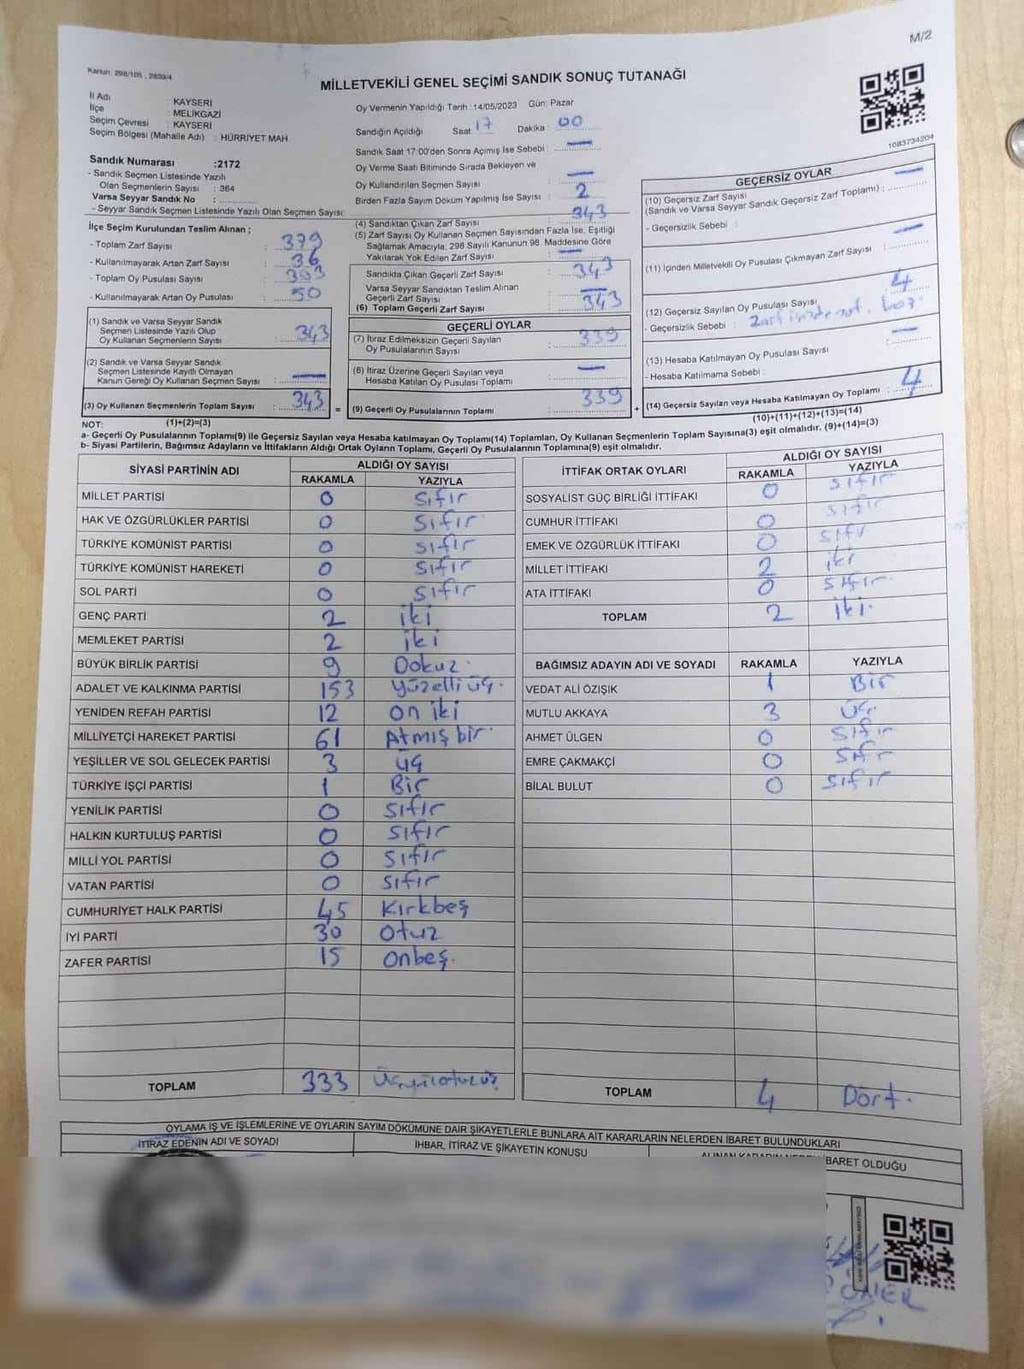 M/2
Kanun: 298/105 , 2839/4
MİLLETVEKİLİ GENEL SEÇİMİ SANDIK SONUÇ TUTANAĞI
İl Adı : KAYSERİ
İlçe : MELİKGAZİ
Seçim Çevresi : KAYSERİ
Seçim Bölgesi (Mahalle Adı) : HÜRRİYET MAH
Sandık Numarası :2172
- Sandık Seçmen Listesinde Yazılı
Olan Seçmenlerin Sayısı : 364
Varsa Seyyar Sandık No :
- Seyyar Sandık Seçmen Listesinde Yazılı Olan Seçmen Sayısı:
İlçe Seçim Kurulundan Teslim Alınan ;
- Toplam Zarf Sayısı : 379
- Kullanılmayarak Artan Zarf Sayısı : 36
- Toplam Oy Pusulası Sayısı : 393
- Kullanılmayarak Artan Oy Pusulası : 50
(1) Sandık ve Varsa Seyyar Sandık
Seçmen Listesinde Yazılı Olup
Oy Kullanan Seçmenlerin Sayısı : 343
(2) Sandık ve Varsa Seyyar Sandık
Seçmen Listesinde Kayıtlı Olmayan
Kanun Gereği Oy Kullanan Seçmen Sayısı : —
(3) Oy Kullanan Seçmenlerin Toplam Sayısı : 343
Oy Vermenin Yapıldığı Tarih :14/05/2023 Gün: Pazar
Sandığın Açıldığı Saat : 17 Dakika : 00
Sandık Saat 17:00'den Sonra Açımış İse Sebebi : —
Oy Verme Saati Bitiminde Sırada Bekleyen ve
Oy Kullandırılan Seçmen Sayısı : —
Birden Fazla Sayım Döküm Yapılmış İse Sayısı : 2
(4) Sandıktan Çıkan Zarf Sayısı : 343
(5) Zarf Sayısı Oy Kullanan Seçmen Sayısından Fazla İse, Eşitliği
Sağlamak Amacıyla; 298 Sayılı Kanunun 98. Maddesine Göre
Yakılarak Yok Edilen Zarf Sayısı : —
Sandıkta Çıkan Geçerli Zarf Sayısı : 343
Varsa Seyyar Sandıktan Teslim Alınan
Geçerli Zarf Sayısı : —
(6) Toplam Geçerli Zarf Sayısı : 343
GEÇERLİ OYLAR
(7) İtiraz Edilmeksizin Geçerli Sayılan
Oy Pusulalarının Sayısı : 339
(8) İtiraz Üzerine Geçerli Sayılan veya
Hesaba Katılan Oy Pusulası Toplamı : —
= (9) Geçerli Oy Pusulalarının Toplamı : 339
1083734204
GEÇERSİZ OYLAR
(10) Geçersiz Zarf Sayısı
(Sandık ve Varsa Seyyar Sandık Geçersiz Zarf Toplamı) : —
- Geçersizlik Sebebi : —
(11) İçinden Milletvekili Oy Pusulası Çıkmayan Zarf Sayısı
(12) Geçersiz Sayılan Oy Pusulası Sayısı : 4
- Geçersizlik Sebebi :
(13) Hesaba Katılmayan Oy Pusulası Sayısı —
- Hesaba Katılmama Sebebi :
+ (14) Geçersiz Sayılan veya Hesaba Katılmayan Oy Toplamı : 4
NOT: (1)+(2)=(3) (10)+(11)+(12)+(13)=(14)
a- Geçerli Oy Pusulalarının Toplamı(9) ile Geçersiz Sayılan veya Hesaba katılmayan Oy Toplamı(14) Toplamları, Oy Kullanan Seçmenlerin Toplam Sayısına(3) eşit olmalıdır. (9)+(14)=(3)
b- Siyasi Partilerin, Bağımsız Adayların ve İttifakların Aldığı Ortak Oyların Toplamı, Geçerli Oy Pusulalarının Toplamına(9) eşit olmalıdır.
SİYASİ PARTİNİN ADI ALDIĞI OY SAYISI
RAKAMLA YAZIYLA
MİLLET PARTİSİ 0 sıfır
HAK VE ÖZGÜRLÜKLER PARTİSİ 0 sıfır
TÜRKİYE KOMÜNİST PARTİSİ 0 sıfır
TÜRKİYE KOMÜNİST HAREKETİ 0 sıfır
SOL PARTİ 0 sıfır
GENÇ PARTİ 2 iki
MEMLEKET PARTİSİ 2 iki
BÜYÜK BİRLİK PARTİSİ 9 Dokuz
ADALET VE KALKINMA PARTİSİ 153 Yüzelli üç.
YENİDEN REFAH PARTİSİ 12 on iki
MİLLİYETÇİ HAREKET PARTİSİ 61 Atmış bir.
YEŞİLLER VE SOL GELECEK PARTİSİ 3 üç
TÜRKİYE İŞÇİ PARTİSİ 1 Bir
YENİLİK PARTİSİ 0 sıfır
HALKIN KURTULUŞ PARTİSİ 0 sıfır
MİLLİ YOL PARTİSİ 0 sıfır
VATAN PARTİSİ 0 sıfır
CUMHURİYET HALK PARTİSİ 45 Kırkbeş
İYİ PARTİ 30 Otuz
ZAFER PARTİSİ 15 Onbeş.
TOPLAM 333
İTTİFAK ORTAK OYLARI ALDIĞI OY SAYISI
RAKAMLA YAZIYLA
SOSYALİST GÜÇ BİRLİĞİ İTTİFAKI 0 sıfır
CUMHUR İTTİFAKI 0 sıfır
EMEK VE ÖZGÜRLÜK İTTİFAKI 0 sıfır
MİLLET İTTİFAKI 2 iki
ATA İTTİFAKI 0 sıfır.
TOPLAM 2 iki.
BAĞIMSIZ ADAYIN ADI VE SOYADI RAKAMLA YAZIYLA
VEDAT ALİ ÖZIŞIK 1 Bir
MUTLU AKKAYA 3 üç.
AHMET ÜLGEN 0 sıfır
EMRE ÇAKMAKÇİ 0 sıfır
BİLAL BULUT 0 sıfır
TOPLAM 4 Dört.
OYLAMA İŞ VE İŞLEMLERİNE VE OYLARIN SAYIM DÖKÜMÜNE DAİR ŞİKAYETLERLE BUNLARA AİT KARARLARIN NELERDEN İBARET BULUNDUKLARI
İTİRAZ EDENİN ADI VE SOYADI İHBAR, İTİRAZ VE ŞİKAYETİN KONUSU ALINAN KARARIN NEDEN İBARET OLDUĞU